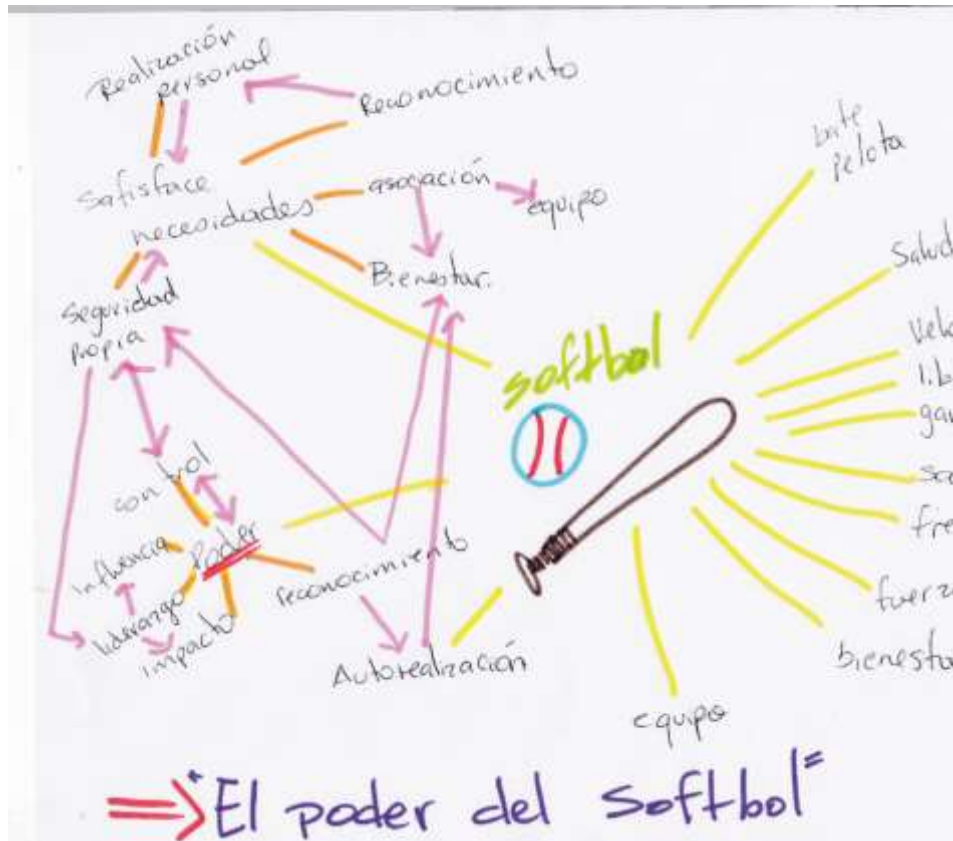 Realización
personal
Reconocimiento
Satisface
necesidades
asociación
equipo
Bienestar.
Seguridad
Propia
control
Influencia
Poder
liderazgo
impacto
reconocimiento
Autorealización
softbol
bate
pelota
Salud
fuerz
bienesta
equipo
"El poder del Softbol"